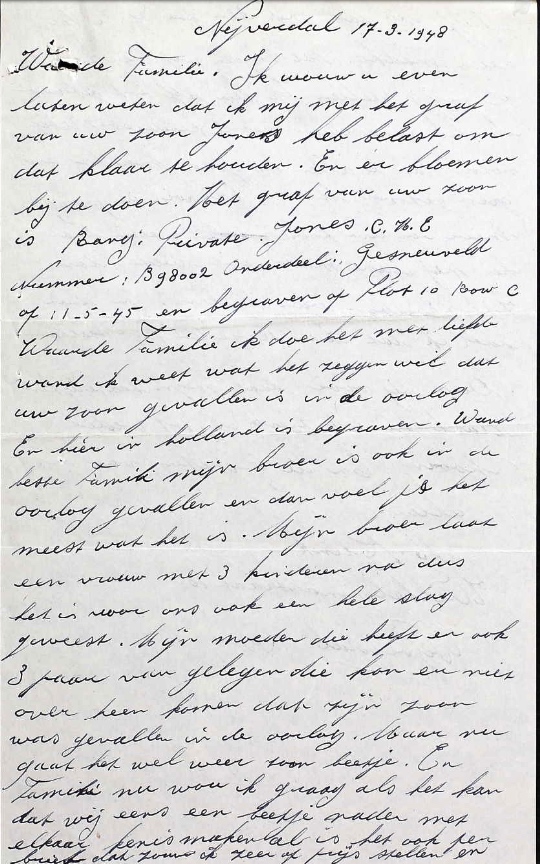 Nijverdal 17-3-1948
Waarde Familie. Ik wouw u even
laten weten dat ik mij met het graf
van uw zoon Jones heb belast om
dat klaar te houden. En er bloemen
bij te doen. Het graf van uw zoon
is Rang: Private. Jones. C. H. E
Nummer: B98002 Onderdeel: Gesneuveld
of 11-5-45 en begraven of Plot 10 Row C
Waarde Familie ik doe het met liefde
wand ik weet wat het zeggen wil dat
uw zoon gevallen is in de oorlog
En hier in holland is begraven. Wand
beste Famili mijn broer is ook in de
oorlog gevallen en dan voel je het
meest wat het is. Mijn broer laat
een vrouw met 3 kinderen na dus
het is voor ons ook een hele slag
geweest. Mijn moeder die heeft er ook
3 jaar van gelegen die kon er niet
over heen komen dat zijn zoon
was gevallen in de oorlog. Maar nu
gaat het wel weer zoon beetje. En
Famili nu wou ik graag als het kan
dat wij eens een beetje nader met
elkaar kenis maken al is het ook per
brief dat zouw ik zeer of prijs stellen en